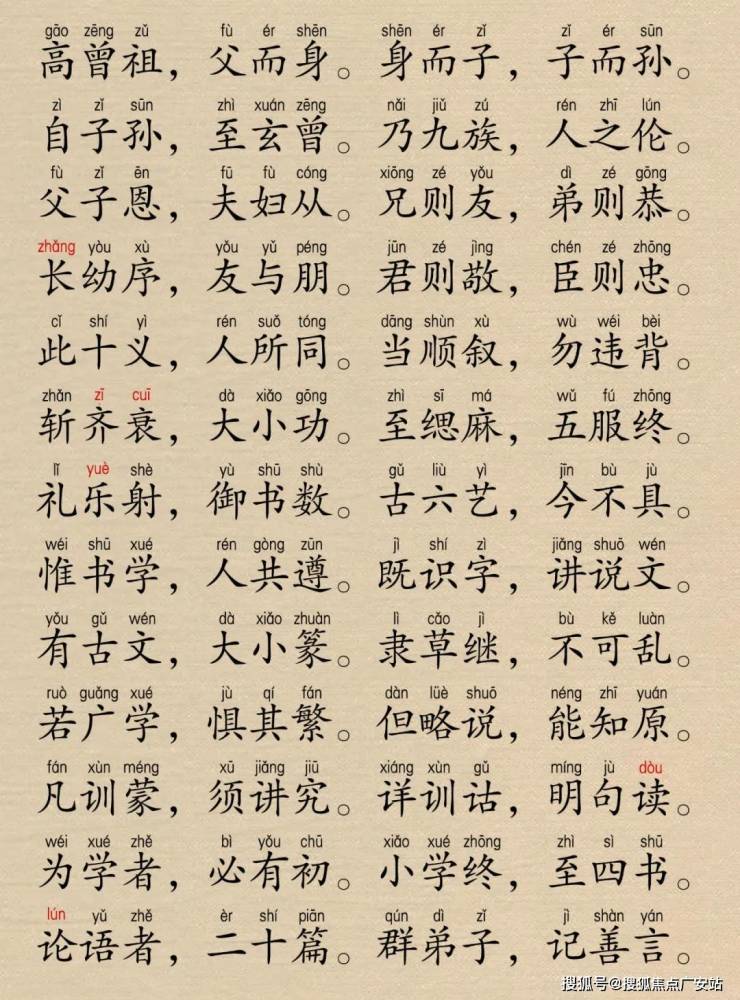 gāo zēng zǔ fù ér shēn shēn ér zǐ zǐ ér sūn
高曾祖，父而身。身而子，子而孙。
zì zǐ sūn zhì xuán zēng nǎi jiǔ zú rén zhī lún
自子孙，至玄曾。乃九族，人之伦。
fù zǐ ēn fū fù cóng xiōng zé yǒu dì zé gōng
父子恩，夫妇从。兄则友，弟则恭。
zhǎng yòu xù yǒu yǔ péng jūn zé jìng chén zé zhōng
长幼序，友与朋。君则敬，臣则忠。
cǐ shí yì rén suǒ tóng dāng shùn xù wù wéi bèi
此十义，人所同。当顺叙，勿违背。
zhǎn zī cuī dà xiǎo gōng zhì sī má wǔ fú zhōng
斩齐衰，大小功。至缌麻，五服终。
lǐ yuè shè yù shū shù gǔ liù yì jīn bù jù
礼乐射，御书数。古六艺，今不具。
wéi shū xué rén gòng zūn jì shí zì jiǎng shuō wén
惟书学，人共遵。既识字，讲说文。
yǒu gǔ wén dà xiǎo zhuàn lì cǎo jì bù kě luàn
有古文，大小篆。隶草继，不可乱。
ruò guǎng xué jù qí fán dàn lüè shuō néng zhī yuán
若广学，惧其繁。但略说，能知原。
fán xùn méng xū jiǎng jiū xiáng xùn gǔ míng jù dòu
凡训蒙，须讲究。详训诂，明句读。
wéi xué zhě bì yǒu chū xiǎo xué zhōng zhì sì shū
为学者，必有初。小学终，至四书。
lún yǔ zhě èr shí piān qún dì zǐ jì shàn yán
论语者，二十篇。群弟子，记善言。
搜狐号@搜狐焦点广安站